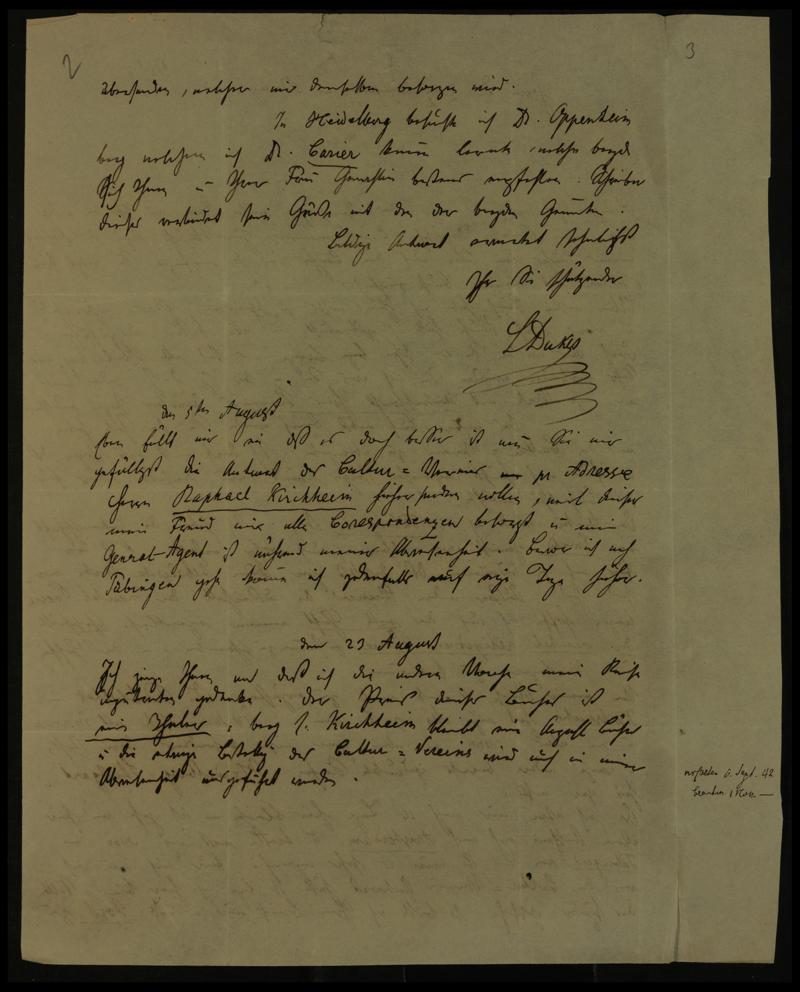 2
3
übersenden, welcher mir denselben besorgen wird.
In Heidelberg besuchte ich Dr. Oppenheim
bey welchem ich Dr. Carier kennen lernte, welche beyde
sich Ihnen u Ihrer Frau Gemahlin bestens empfehlen. Schreiber
dieses verbindet seine Grüße mit den der beyden Genannten.
Baldige Antwort erwartet sehnlichst
Ihr Sie schätzender
L Dukes
den 5ten August
Eben fällt mir ein daß es doch besser ist wenn Sie mir
gefälligst die Antwort des Cultur=Vereines pr Adresse
Herrn Raphael Kirchheim hieher senden wollen, weil dieser
mein Freund mir alle Corespondenzen besorgt u mein
General-Agent ist während meiner Abwesenheit. Bevor ich nach
Tübingen gehe komme ich jedenfalls auf einige Tage hieher.
den 23 August
Ich zeige Ihnen an daß ich die andere Woche meine Reise
anzutreten gedenke. Der Preis dieses Buches ist
ein Thaler, bey H. Kirchheim bleibt ein
u die etwaige Bestellg des Cultur=Vereins wird auch in meiner
Abwesenheit ausgeführt werden.
erhalten 6. Sept. 42